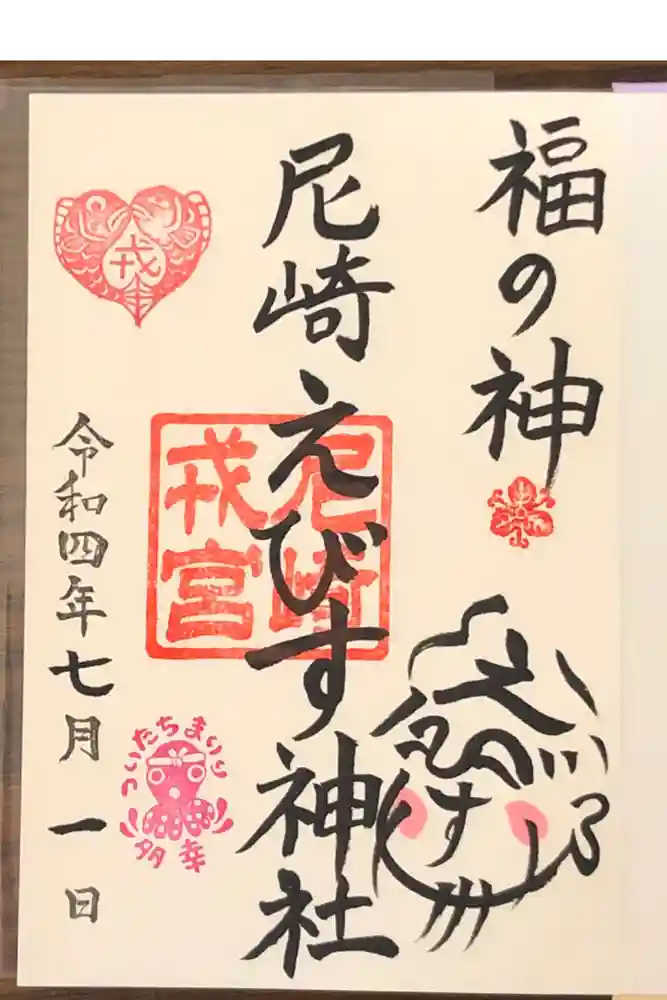 福の神
えびす
尼崎えびす神社
尼崎
戎宮
戎
令和四年七月一日
ついたちまいり
多幸